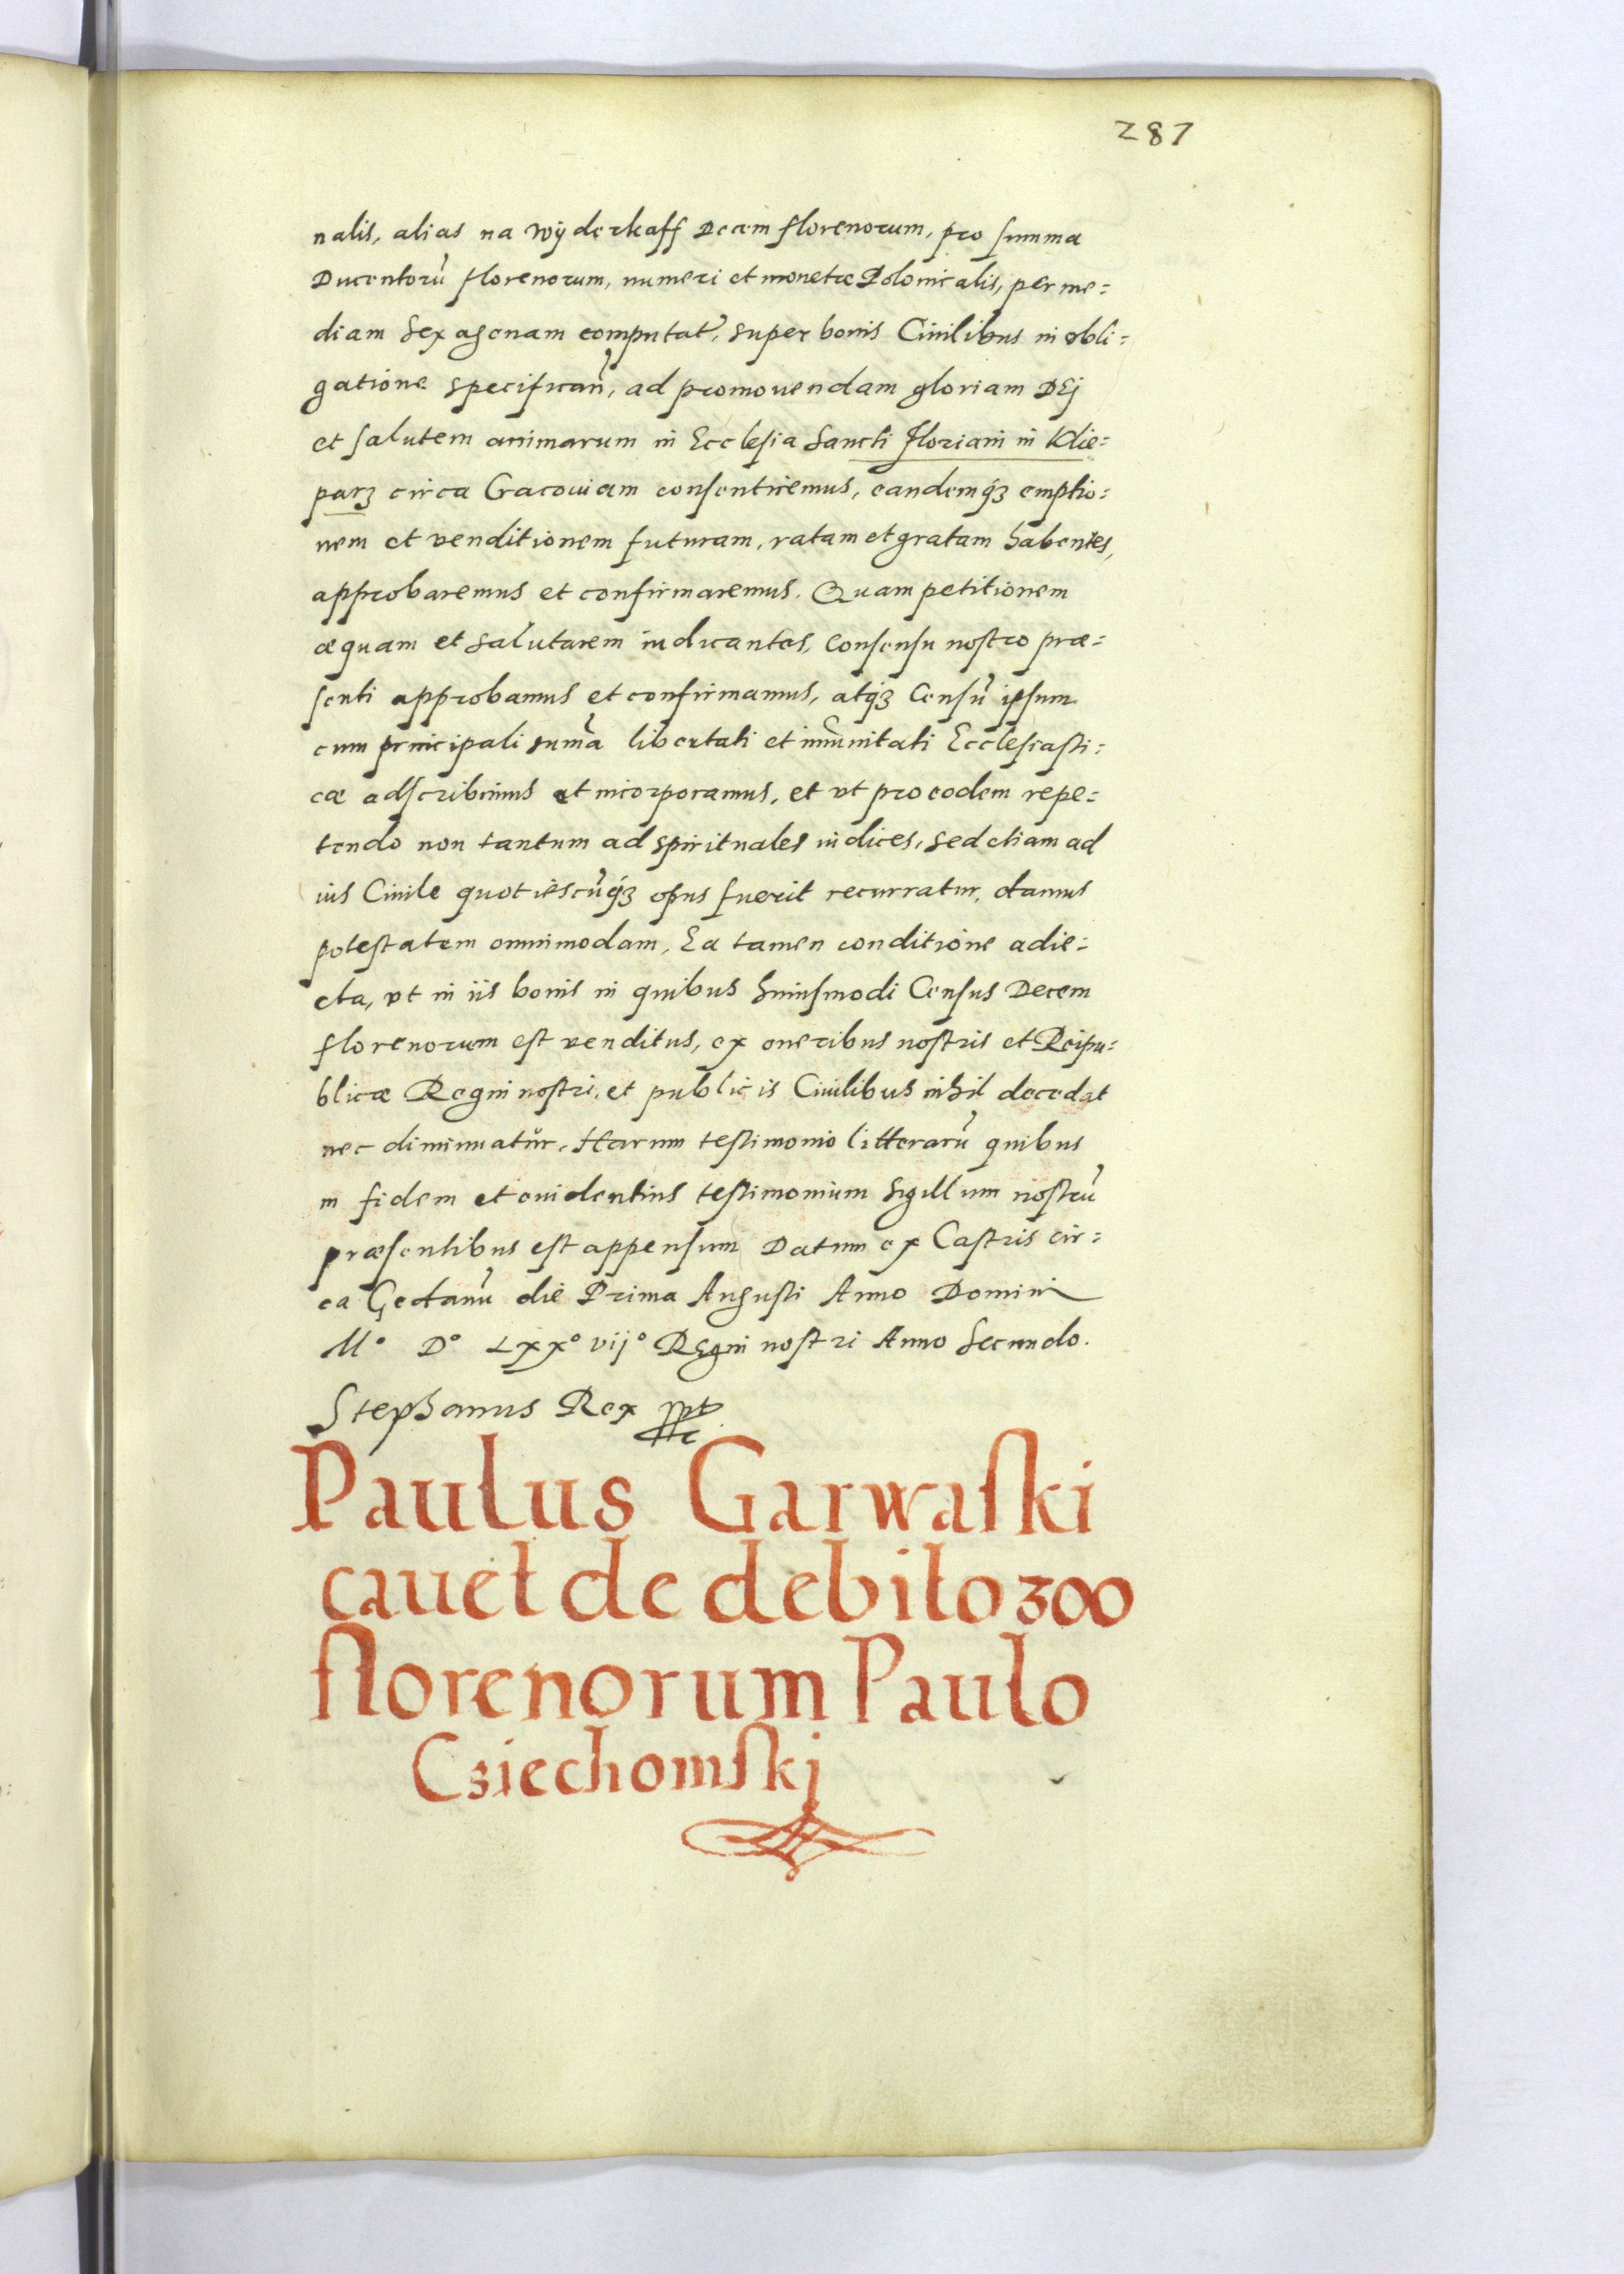 287
nalis, alias na wÿderkaff Decem florenorum, pro summa
Ducentorũ florenorum, numeri et monetæ Polonicalis, per me=
diam sexagenam computat̃, super bonis Ciuilibus in obli=
gatione specifican̄, ad promouendam gloriam DEj
et salutem animarum in Ecclesia Sancti Floriani in Klie=
parz circa Cracouiam consentiremus, eandemqꝫ emptio=
nem et venditionem futuram, ratam et gratam habentes,
approbaremus et confirmaremus. Quam petitionem
æquam et salutarem iudicantes, Consensu nostro præ=
senti approbamus et confirmamus, atqꝫ Censũ ipsum
cum principali sum̃a libertati et im̃unitati Ecclesiasti=
cæ adscribimus et incorporamus, et vt pro eodem repe=
tendo non tantum ad spirituales iudices, sed etiam ad
ius Ciuile quotiescũqꝫ opus fuerit recurratur, damus
potestatem omnimodam, Ea tamen conditione adie=
cta, vt in iis bonis in quibus huiusmodi Census Decem
florenorum est venditus, ex oneribus nostris et Reipu=
blicæ Regni nostri, et publicis Ciuilibus nihil decedat
nec diminuatur. Harum testimonio litterarũ quibus
in fidem et euidentius testimonium Sigillum nostrũ
præsentibus est appensum Datum ex Castris cir=
ca Gedanũ die Prima Augusti Anno Domini
M° D° Lxx° vij° Regni nostri Anno Secundo.
Stephanus Rex
Paulus Garwaski
cauet de debito 300
florenorum Paulo
Csiechomskj